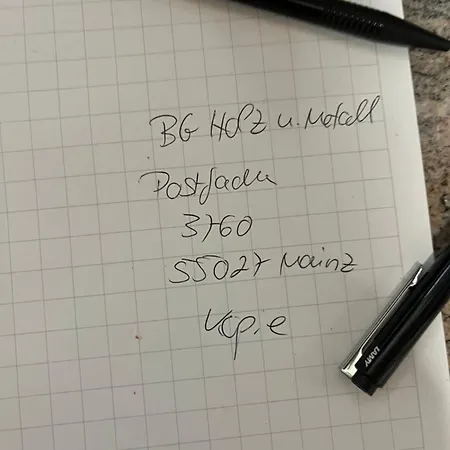 BG Holz u. Metall
Postfach
3760
55027 Mainz
Kopie
LAMY